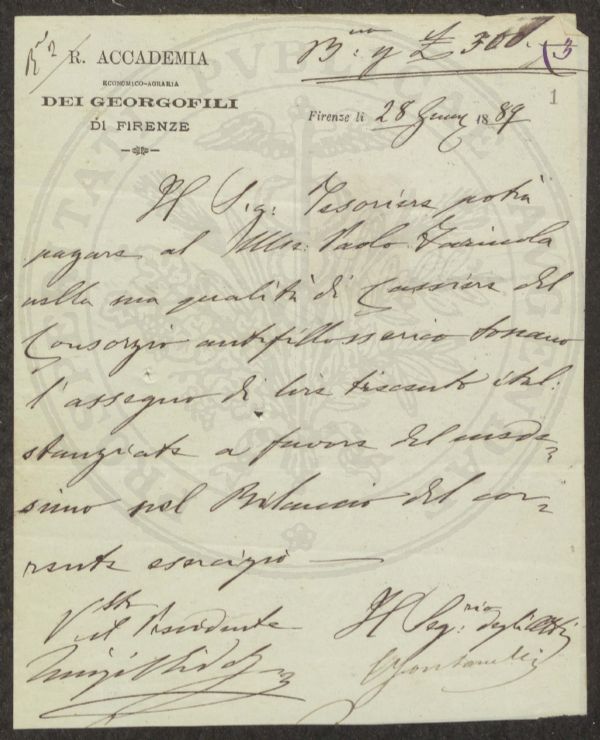 R. ACCADEMIA
ECONOMICO-AGRARIA
DEI GEORGOFILI
DI FIRENZE
B.no per £ 300
3
1
Firenze li 28 Genn 1889
Il Sig: Tesoriere potrà
pagare al Paolo Farinola
nella sua qualità di Cassiere del
Consorzio antifillosserico toscano
l'assegno di lire trecento ital:
stanziate a favore del mede=
simo nel Bilancio del cor=
rente esercizio —
Il Presidente
Il Seg:rio degli Atti